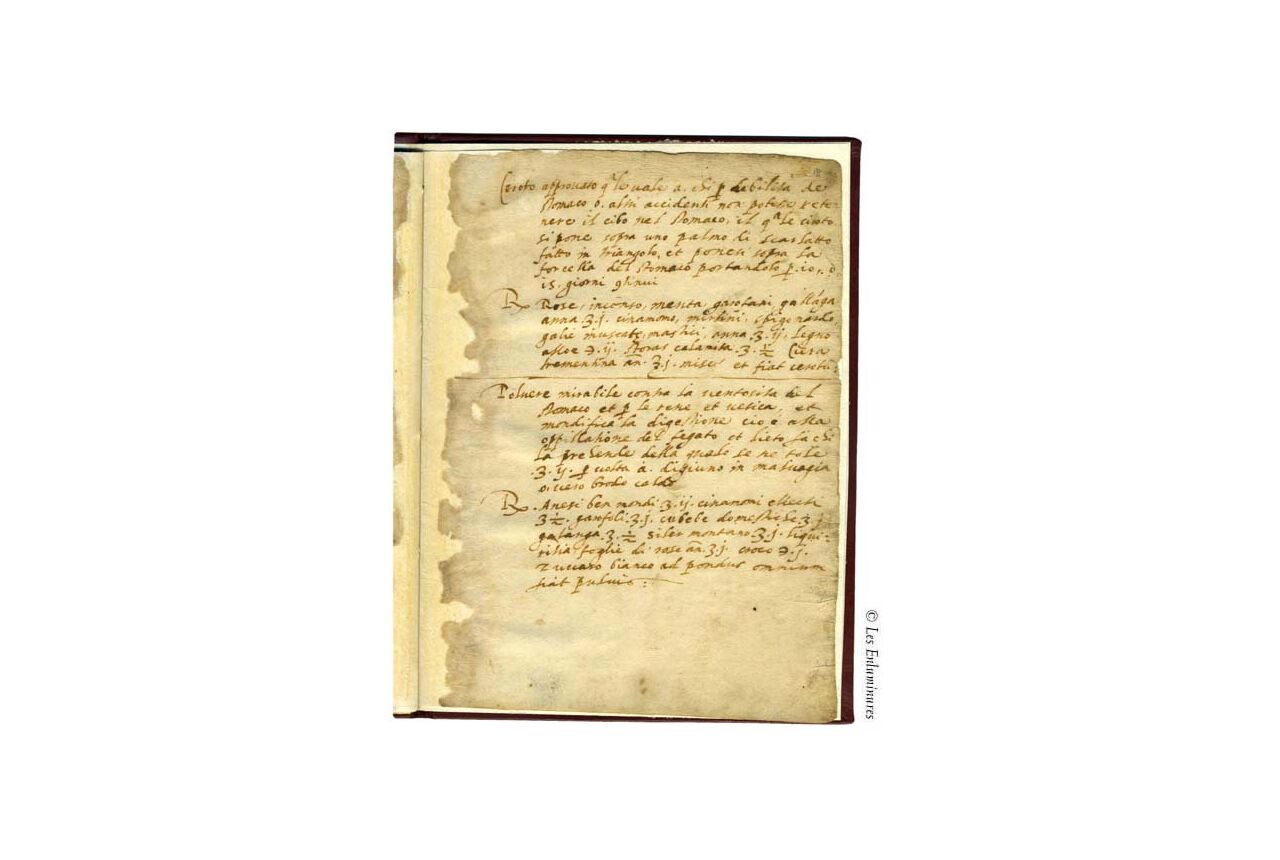 Ceroto approvato qle vale a. chi p debilità de
stomaco o. altri accidenti non potesse rete
nere il cibo nel stomaco, il qle ciroto
si pone sopra uno palmo di scarlatto
fatto in triangolo, et ponesi sopra la
forcella del stomaco portandolo p. 10. o
15. giorni
℞ Rose, incenso, menta, garofani, gallãga
anna ʒ. j. cinamomo, mirtini, spigonardo,
galie muscate, mastici, anna ʒ. ij. Legno
aloe ℈. ij. storas calamita ʒ. ½ Cera
trementina añ. ʒ. j. misce et fiat cerotũ:
Polvere mirabile contra la ventosita del
stomaco et p le rene et vesica, et
mondifica la digestione cio è alla
oppillatione del fegato et lieto fa chi
la prehende della quale se ne tole
ʒ. ij. p volta à. digiuno in malvagia
overo brodo caldo
℞. Anesi ben mondi ʒ. ij. cinamomi electi
ʒ ½. garofoli ʒ. j. cubebe domestiche ʒ j
galanga ʒ. ½ siler montano ʒ. j. liqui-
ritia foglie di rose añ. ʒ. j. croco ℈. j.
zuccaro bianco ad pondus omnium
fiat pulvis:
© Les Enluminures